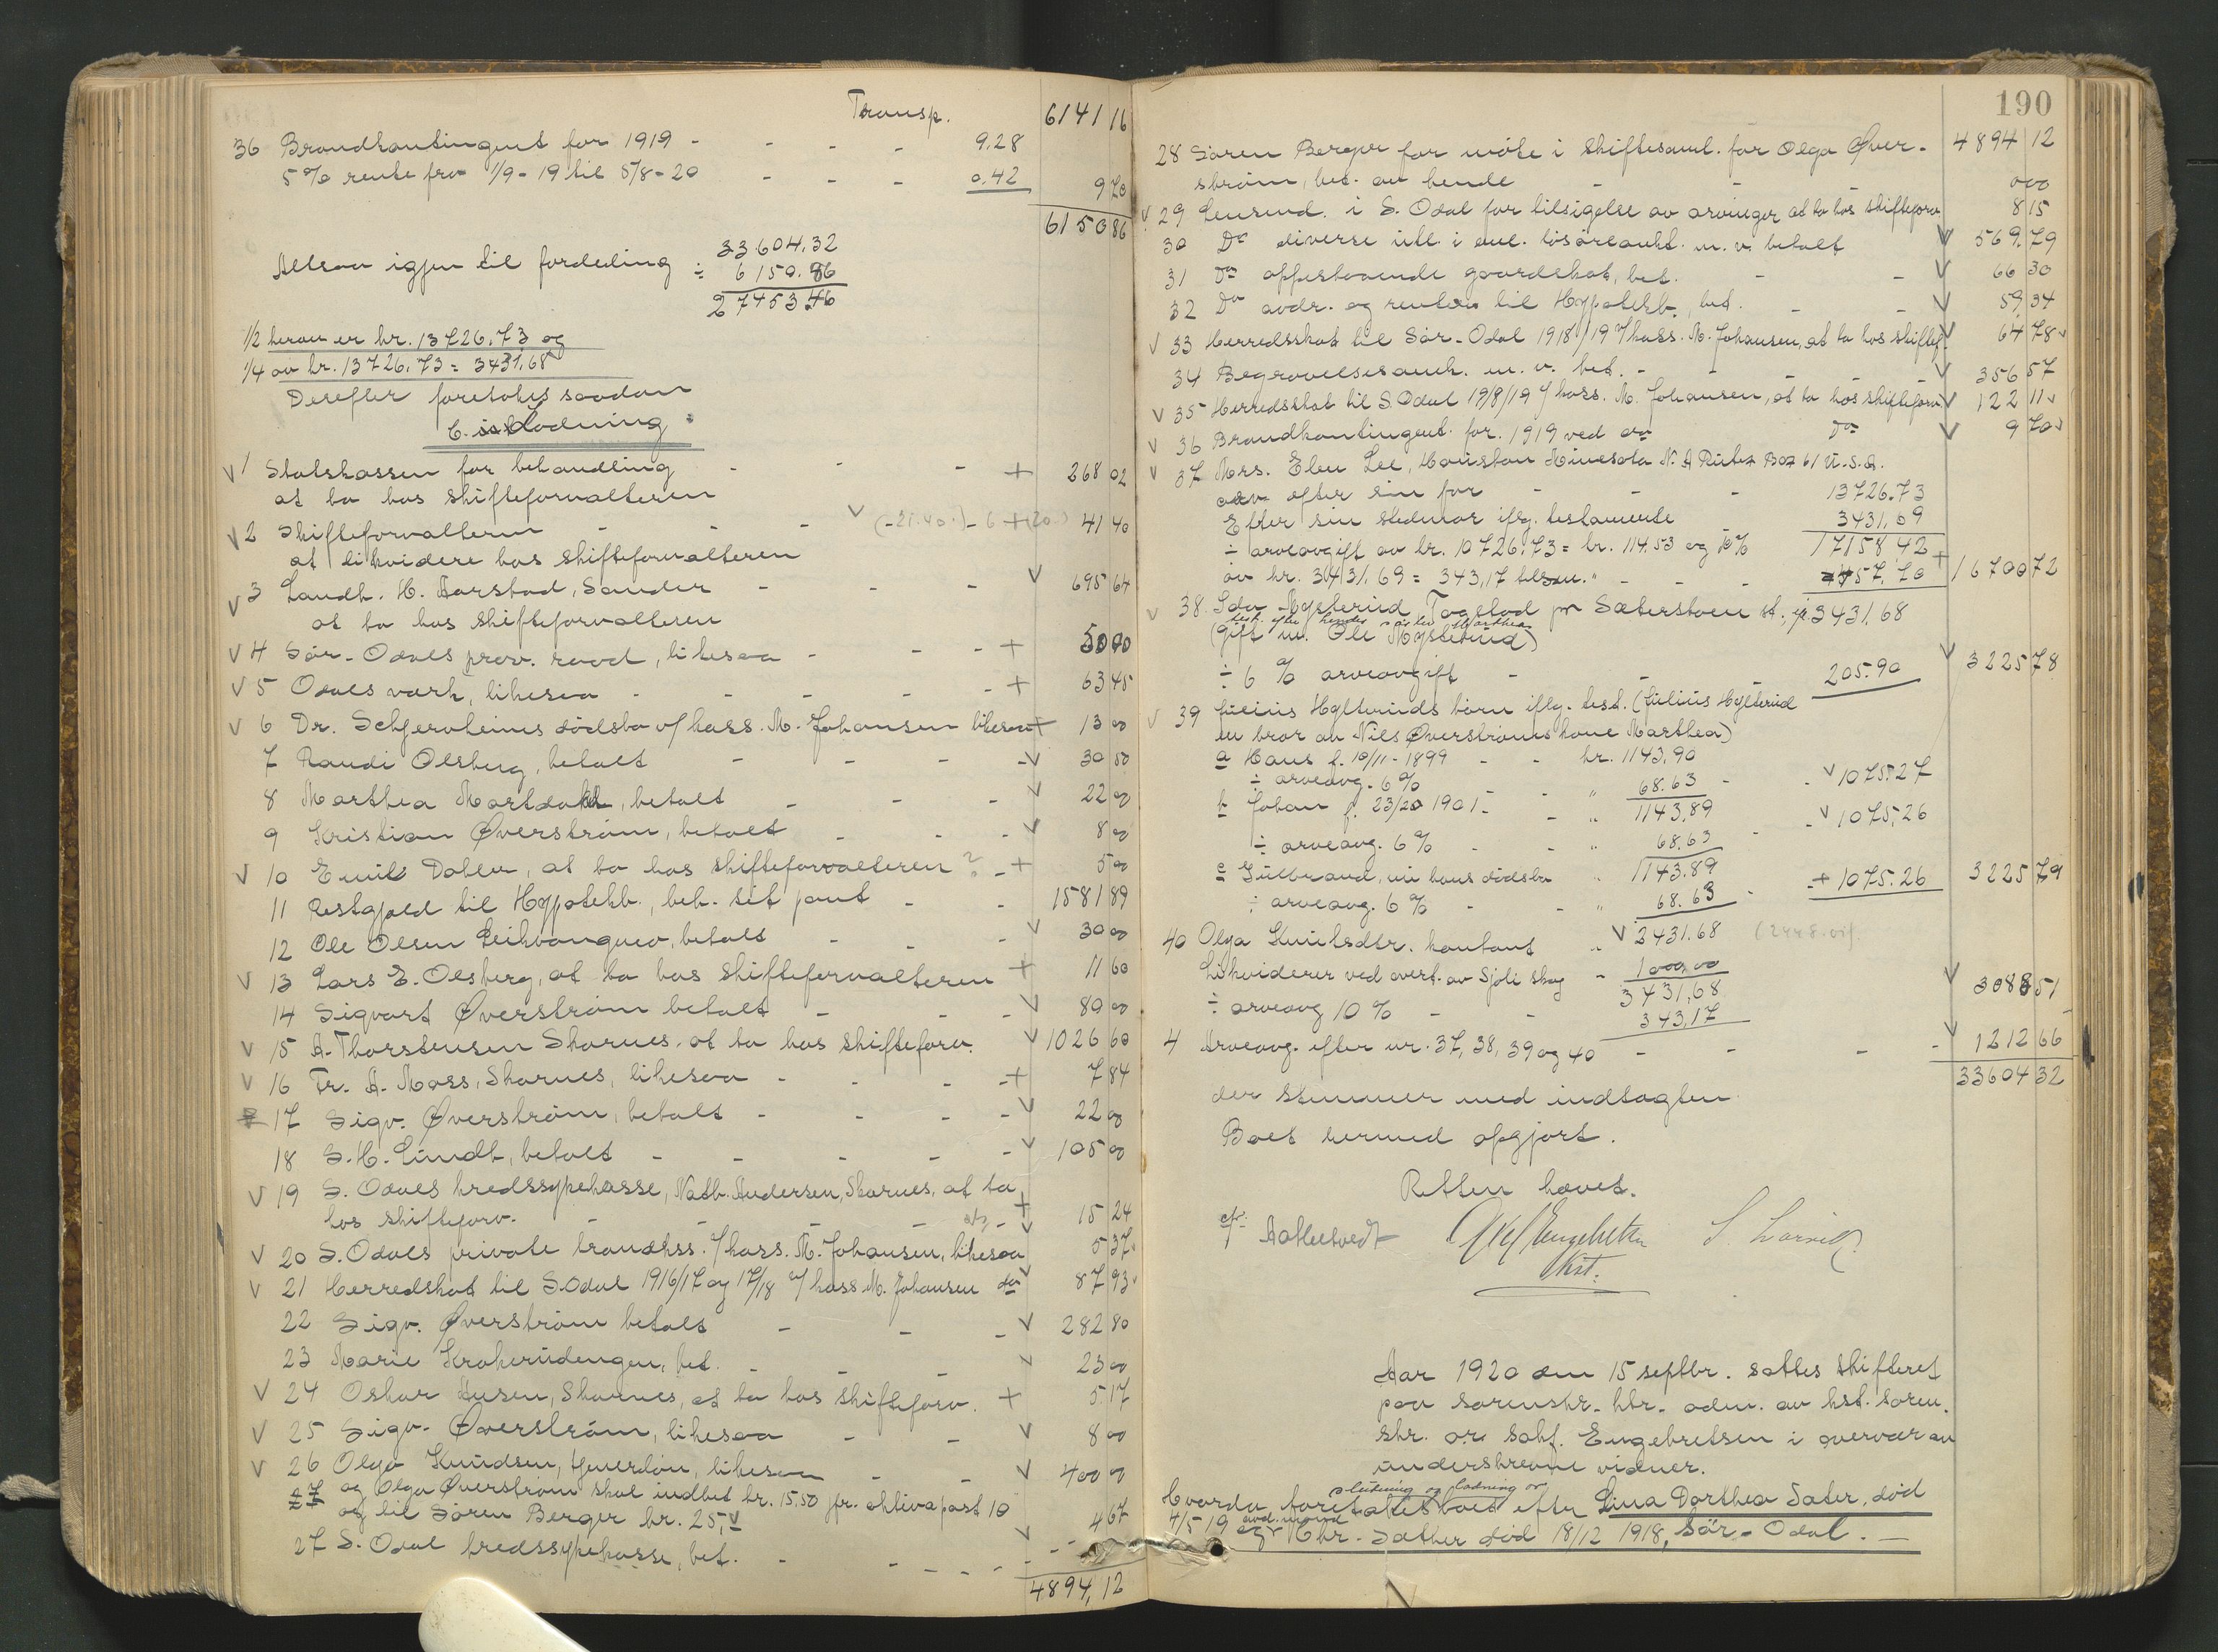 Transp. 6141 16
36 Brandkontingent for 1919 - - - - 9.28
5% rente fra 1/9-19 til 5/8-20 - - - 0.42 9 70
6150 86
33604.32
Altsaa igjen til fordeling ÷ 6150.86
27453.46
1/2 herav er kr. 13726.73 og
1/4 av kr. 13726.73 = 3431.68
Derefter foretokes saadan
C. Lodning:
1 Statskassen for behandling - - - + 268 02
at ta hos skifteforvalteren
2 Skifteforvalteren - - - 41 40
at likvidere hos skifteforvalteren
3 Landh. H. Harstad, Sander - - - 695 64
at ta hos skifteforvalteren
4 Sør-Odals prov. raad, likesaa - - - + 50 00
5 Odals værk, likesaa - - - - - + 63 45
6 Dr. Schjeroheims dødsbo v/ kass. M. Johansen likesaa + 13 00
7 Randi Olsberg, betalt - - - - 30 50
8 Marthea betalt - - - 22 00
9 Kristian Øverstrøm, betalt - - - 8 00
10 Emil Dahlen, at ta hos skifteforvalteren? - + 5 00
11 Restgjæld til Hypotekb., beh. sit pant - - 1581 89
12 Ole Olsen betalt - - - 30 00
13 Lars E. Olsberg, at ta hos skifteforvalteren + 11 60
14 Sigvart Øverstrøm betalt - - - 80 00
15 A. Thorstensen Skarnes, at ta hos skifteforv. 1026 60
16 Fr. A. Moss, Skarnes, likesaa - - - + 7 84
17 Sigv. Øverstrøm, betalt - - - - 22 00
18 S. H. Lundt, betalt - - - - - 105 00
19 S. Odals kredssykekasse, Nath. Andersen, Skarnes, at ta
hos skifteforv. - - - - - + 15 24
20 S. Odals private brandkss. v/ kass. M. Johansen, likesaa 5 37
21 Herredskat til S. Odal 1916/17 og 17/18 v/ kass M. Johansen do 87 93
22 Sigv. Øverstrøm betalt - - - 282 80
23 Marie Krokerudengen, bet. - - - 23 00
24 Oskar Ausen, Skarnes, at ta hos skifteforv. + 5 17
25 Sigv. Øverstrøm, likesaa - - 8 00
26 Olga Knudsen, likesaa - - 400 0
27 og Olga Øverstrøm skal indbet kr. 15.50 jfr. aktivapost 10
og til Søren Berger kr. 25,- 4 67
27 S. Odal kredssykekasse, bet. - - - - - - -
4894,12
190
4894 12
28 Søren Berger for møte i skiftesaml. for Olga Øver-
strøm, bet. av hende - - - 000
29 Lensmd. i S. Odal for tilsigelse av arvinger at ta hos skifteforv. 8 15
30 Do diverse utl. i anl. løsøreaukt. m. v. betalt 569.79
31 Do oppestaaende gaardskat, bet. - - 66 30
32 Do avdr. og renter til Hypotekb., bet. - - 59,34
33 Herredsskat til Sør-Odal 1918/19 v/ kass. M. Johansen, at ta hos skiftef. 64 78
34 Begravelsesomk. m. v. bet. - - - - 356 57
35 Herredsskat til S. Odal 19/8/19 v/ kass. M. Johansen, at ta hos skifteforv. 122 11
36 Brandkontingent for 1919 ved do do 9 70
37 Mrs. Elen Lee, Houston Minesota N. A Rute 2 Box 61 U.S.A.
arv efter sin far - - - 13726.73
Efter sin stedmor iflg. testamente 3431.69
17158.42
÷ arveavgift av kr. 10726.73 = kr. 114.53 og 10%
av kr. 3431.69 = 343,17 tilsm. " - - - 457,70 + 16700 72
38. Ida Mysterud, Tagstad pr Sæterstøen st. 3431.68
test. efter hendes søster Marthea
(gift m. Ole Mysterud)
÷ 6% arveavgift - - - 205.90 3225 78
39 Julius Hylteruds barn iflg. test. (Julius Hylterud
en bror av Niels Øverstrøms kone Marthea)
a Hans f. 10/11-1899 - - kr. 1143.90
÷ arveavg. 6% - - " 68.63 - - 1075.27
b Johan f. 23/20 1901 - - " 1143.89
÷ arveavg. 6% - " 68.63 - - 1075.26
c Gulbrand, nu hans dødsbo " 1143.89
÷ arveavg. 6% - - " 68.63 - + 1075.26 3225 79
40 Olga Knudsdtr. kontant " 2431.68
Likviderer ved overt. av Sjøli skog - 1000,00
3431,68
÷ arveavg 10% - - 343,17 3088 51
4 Arveavg. efter nr. 37, 38, 39 og 40 - - - 1212 66
33604 32
der stemmer med indtægten.
Boet hermed opgjort.
Retten hævet.
Axel Engebretsen
Kst.
Aar 1920 den 15 septbr. sattes skifteret
paa sorenskr. ktr. adm. av kst. soren.
skr. o.r. sakf. Engebretsen i overvær av
underskrevne vidner.
slutning og lodning av
Hvorda foretakes boet efter Lina Dorthea Sæter, død
4/5-19 og avd. mand Chr. Sæther død 18/12 1918, Sør-Odal. -